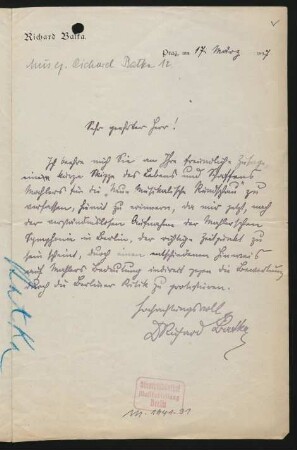 Richard Batka.
Prag, am 17. März 97
Mus. ep. Richard Batka 12
Sehr geehrter Herr!
Ich mahne mich Sie an Ihre freundliche Zusage,
einer kurze Skizze des Lebens und Schaffens
Mahlers für die „Neue Musikalische Rundschau" zu
verfassen, hiemit zu erinnern, da mir jetzt, nach
der verständnislosen Aufnahme der Mahlerschen
Symphonie in Berlin, der richtige Zeitpunkt zu
sein scheint, durch einen entschiedenen Hinweis
auf Mahlers Bedeutung indirect gegen die
durch die Berliner Kritik zu protestieren.
Hochachtungsvoll
Richard Batka
Batka
Musikabteilung
Berlin